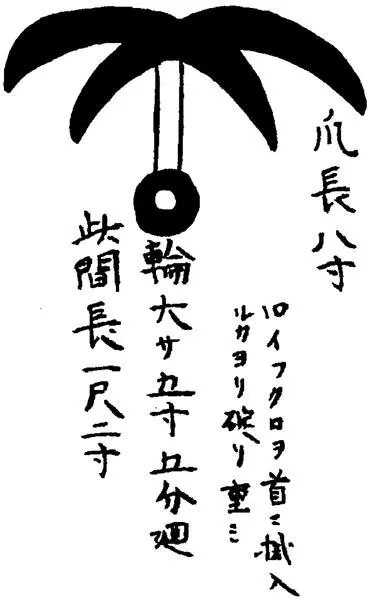 爪長八寸
イフクロヲ首ニ掛入
ルカヨリ リ重ミ
輪大サ五寸五分廻
此間長一尺二寸